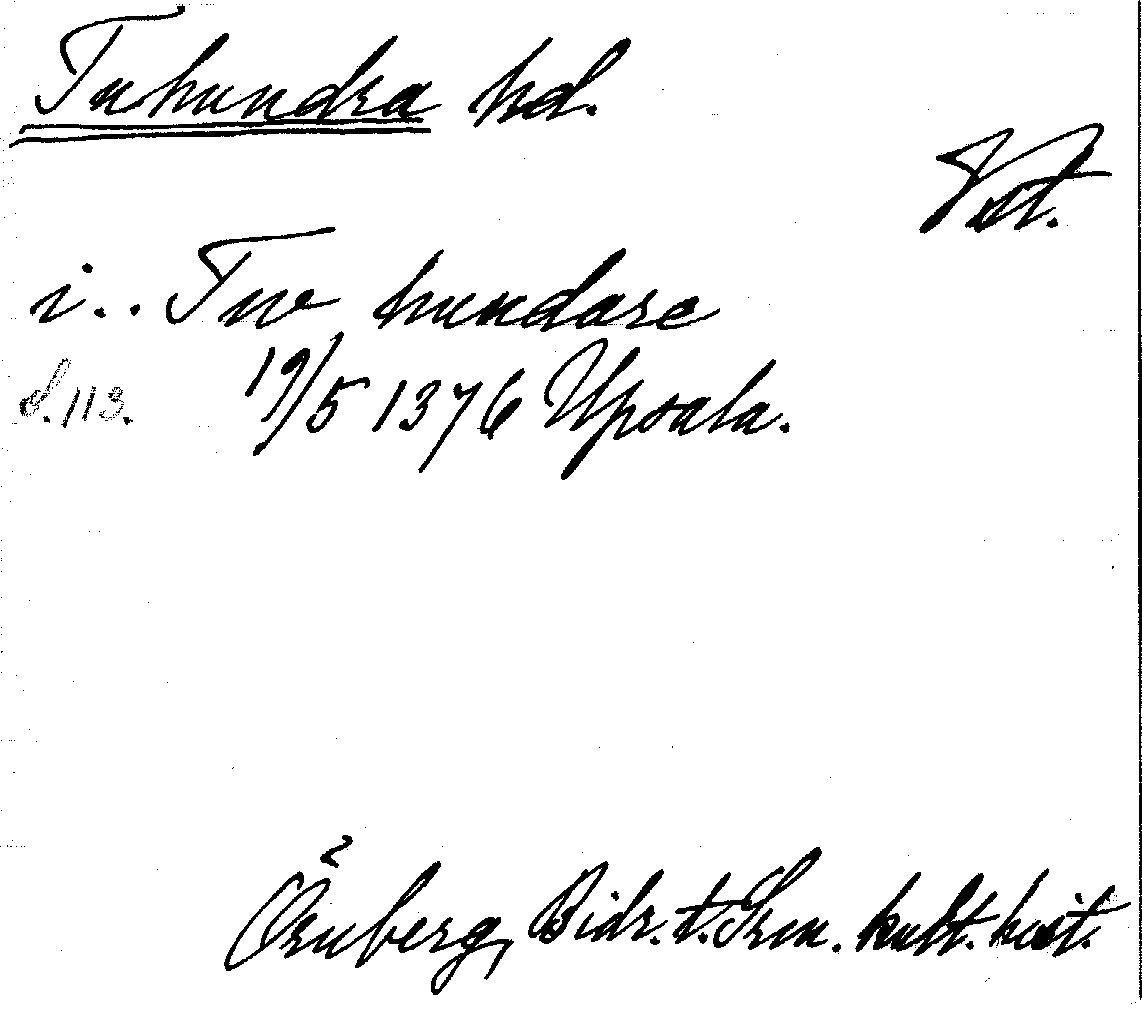 Tuhundra hd.
Vst.
i.. Tuv hundare
s. 113. 19/5 1376 Upsala.
Örnberg, Bidr. t. Srm. kult. hist.